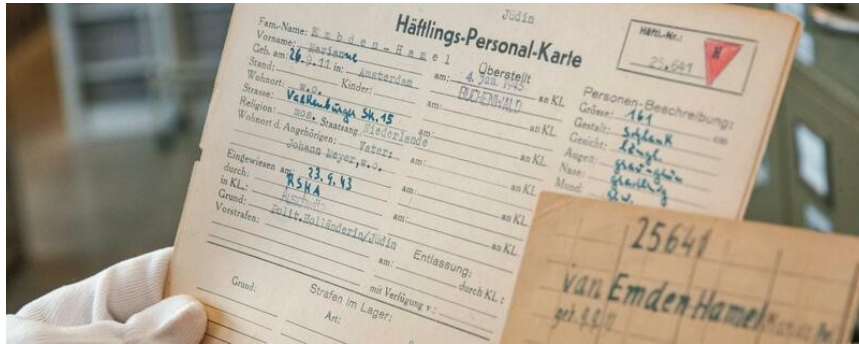 Jüdin
Häftlings-Personal-Karte
Fam.-Name: Embden-Hamel
Vorname: Marianne
Geb. am: 26.9.11 in: Amsterdam
Stand: Kinder:
Wohnort: w.o.
Strasse: Valkenburger Str. 15
Religion: mos. Staatsang. Niederlande
Wohnort d. Angehörigen: Vater:
Johann Meyer, w.o.
Eingewiesen am: 23.9.43
durch: RSHA
in KL.: Auschwitz
Grund: Polit. Holländerin/Jüdin
Vorstrafen:
Grund: Strafen im Lager:
Art:
Überstellt
am: 4. Jan. 1945 an KL
BUCHENWALD
am: an KL.
am: an KL.
am: an KL.
am: an KL.
am: an KL.
Entlassung:
am: durch KL.:
mit Verfügung v.:
Häftl.-Nr.:
N
25.641
Personen-Beschreibung:
Grösse: 161 cm
Gestalt: schlank
Gesicht: längl.
Augen: graugrün
Nase: gradlinig
Mund:
25641
van Emden-Hamel